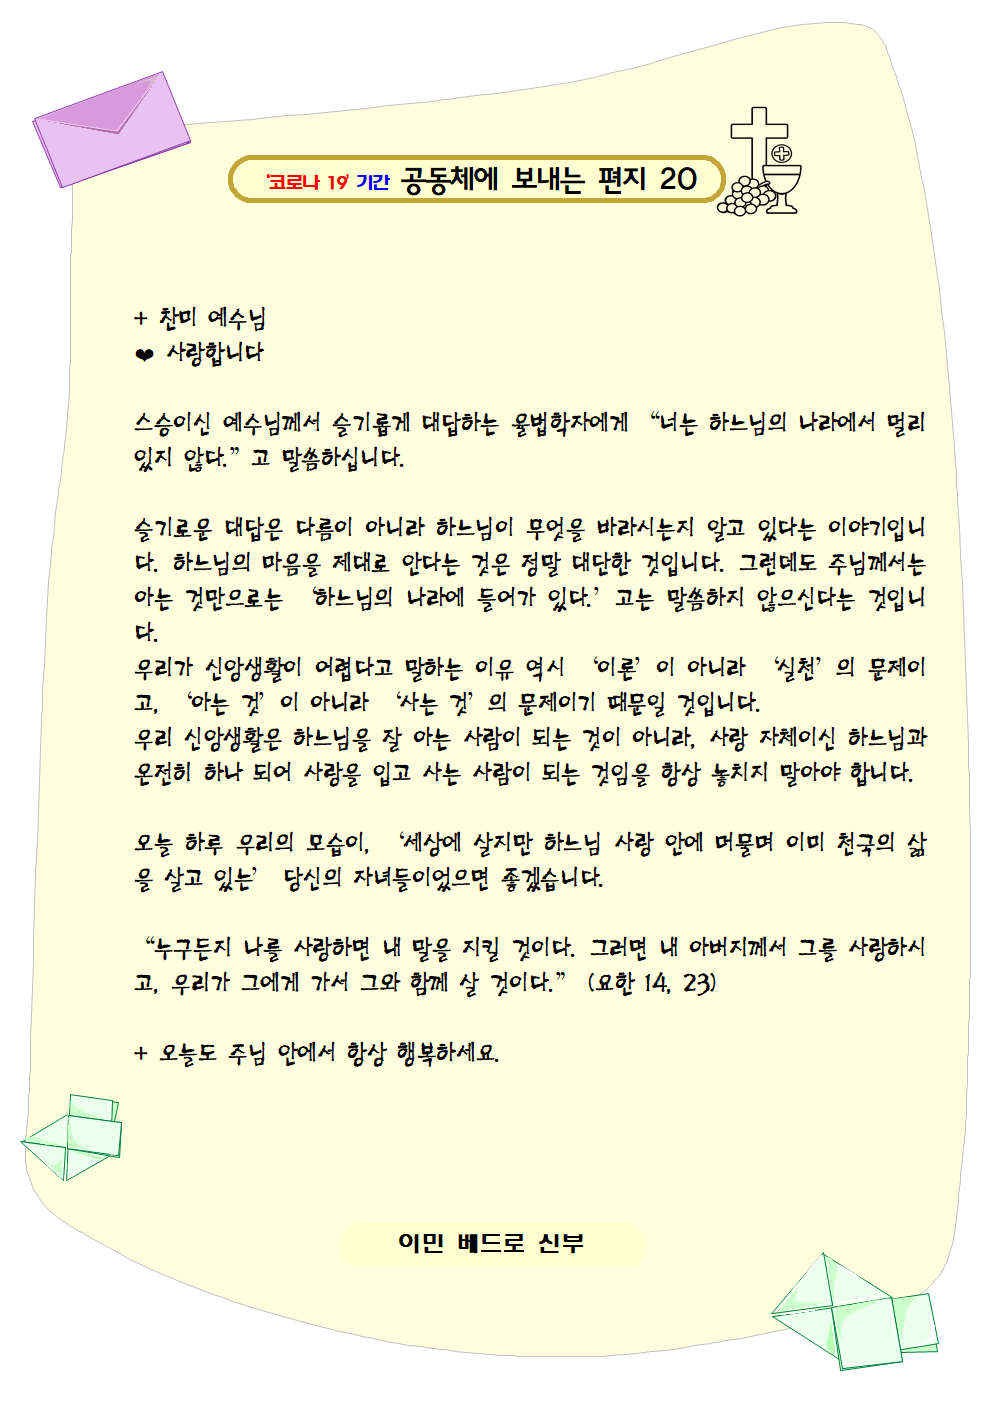 '코로나 19' 기간 공동체에 보내는 편지 20
+ 찬미 예수님
❤ 사랑합니다
스승이신 예수님께서 슬기롭게 대답하는 율법학자에게 “너는 하느님의 나라에서 멀리
있지 않다.”고 말씀하십니다.
슬기로운 대답은 다름이 아니라 하느님이 무엇을 바라시는지 알고 있다는 이야기입니
다. 하느님의 마음을 제대로 안다는 것은 정말 대단한 것입니다. 그런데도 주님께서는
아는 것만으로는 ‘하느님의 나라에 들어가 있다.’고는 말씀하지 않으신다는 것입니
다.
우리가 신앙생활이 어렵다고 말하는 이유 역시 ‘이론’이 아니라 ‘실천’의 문제이
고, ‘아는 것’이 아니라 ‘사는 것’의 문제이기 때문일 것입니다.
우리 신앙생활은 하느님을 잘 아는 사람이 되는 것이 아니라, 사랑 자체이신 하느님과
온전히 하나 되어 사랑을 입고 사는 사람이 되는 것임을 항상 놓치지 말아야 합니다.
오늘 하루 우리의 모습이, ‘세상에 살지만 하느님 사랑 안에 머물며 이미 천국의 삶
을 살고 있는’ 당신의 자녀들이었으면 좋겠습니다.
“누구든지 나를 사랑하면 내 말을 지킬 것이다. 그러면 내 아버지께서 그를 사랑하시
고, 우리가 그에게 가서 그와 함께 살 것이다.” (요한 14, 23)
+ 오늘도 주님 안에서 항상 행복하세요.
이민 베드로 신부